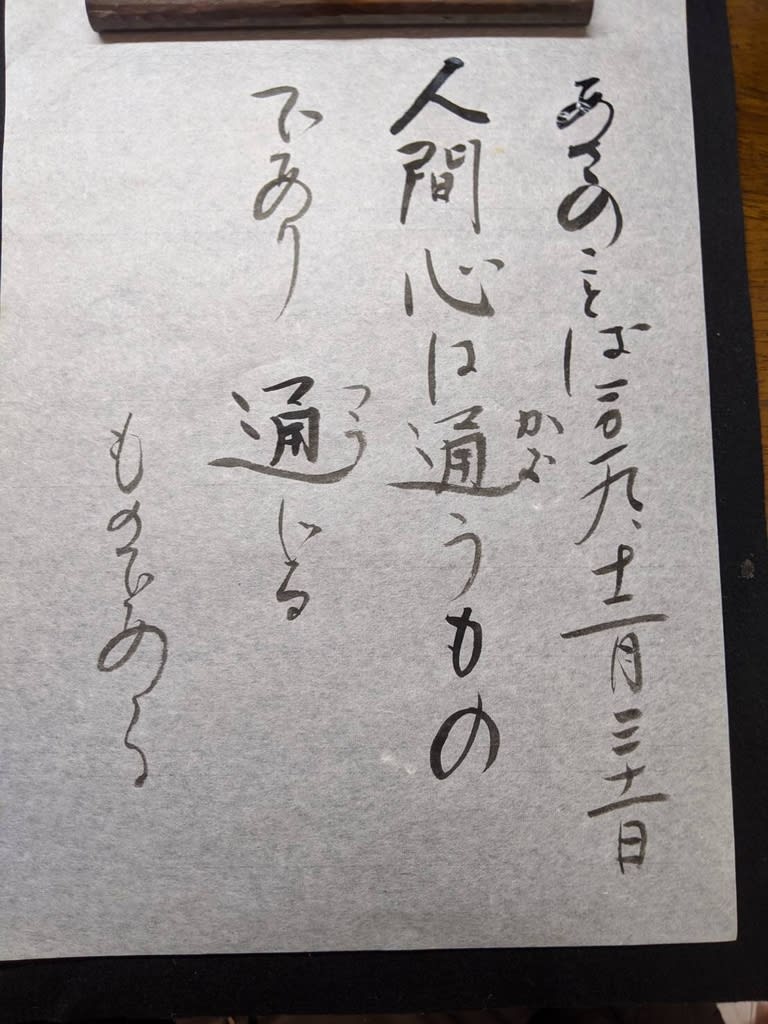 あさのことば二〇一九、十二月三十一日
人間心は通うもの
かよ
であり 通じる
つう
ものである